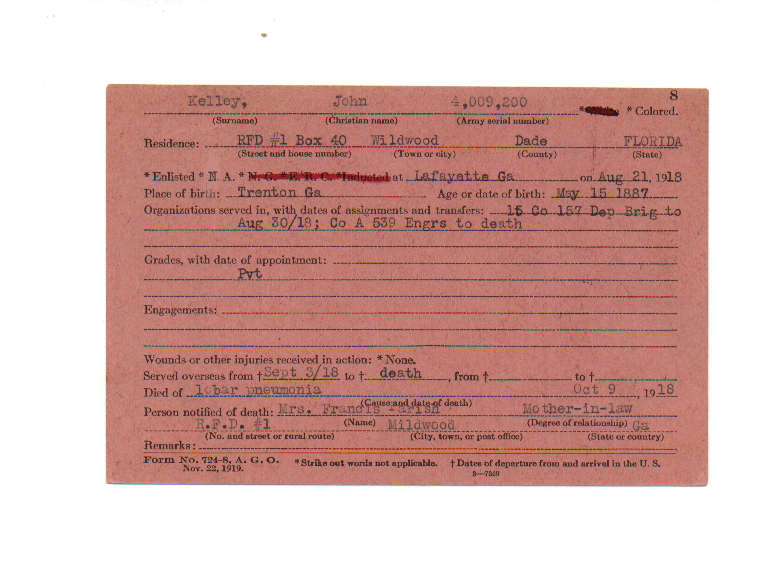 8
Kelley, John 4,009,200 * * Colored.
(Surname) (Christian name) (Army serial number)
Residence: RFD #1 Box 40 Wildwood Dade FLORIDA
(Street and house number) (Town or city) (County) (State)
* Enlisted * N. A. * N. G. * E. R. C. * Inducted at Lafayette Ga on Aug 21, 1918
Place of birth: Trenton Ga Age or date of birth: May 15 1887
Organizations served in, with dates of assignments and transfers: 15 Co 157 Dep Brig to
Aug 30/18; Co A 539 Engrs to death
Grades, with date of appointment:
Pvt
Engagements:
Wounds or other injuries received in action: * None.
Served overseas from † Sept 3/18 to † death, from † to †
Died of lobar pneumonia Oct 9, 1918
(Cause and date of death)
Person notified of death: Mrs. Francis Parish Mother-in-law
(Name) (Degree of relationship)
R.F.D. #1 Mildwood Ga
(No. and street or rural route) (City, town, or post office) (State or country)
Remarks:
Form No. 724-8, A. G. O. * Strike out words not applicable. † Dates of departure from and arrival in the U. S.
Nov. 22, 1919. 3—7529